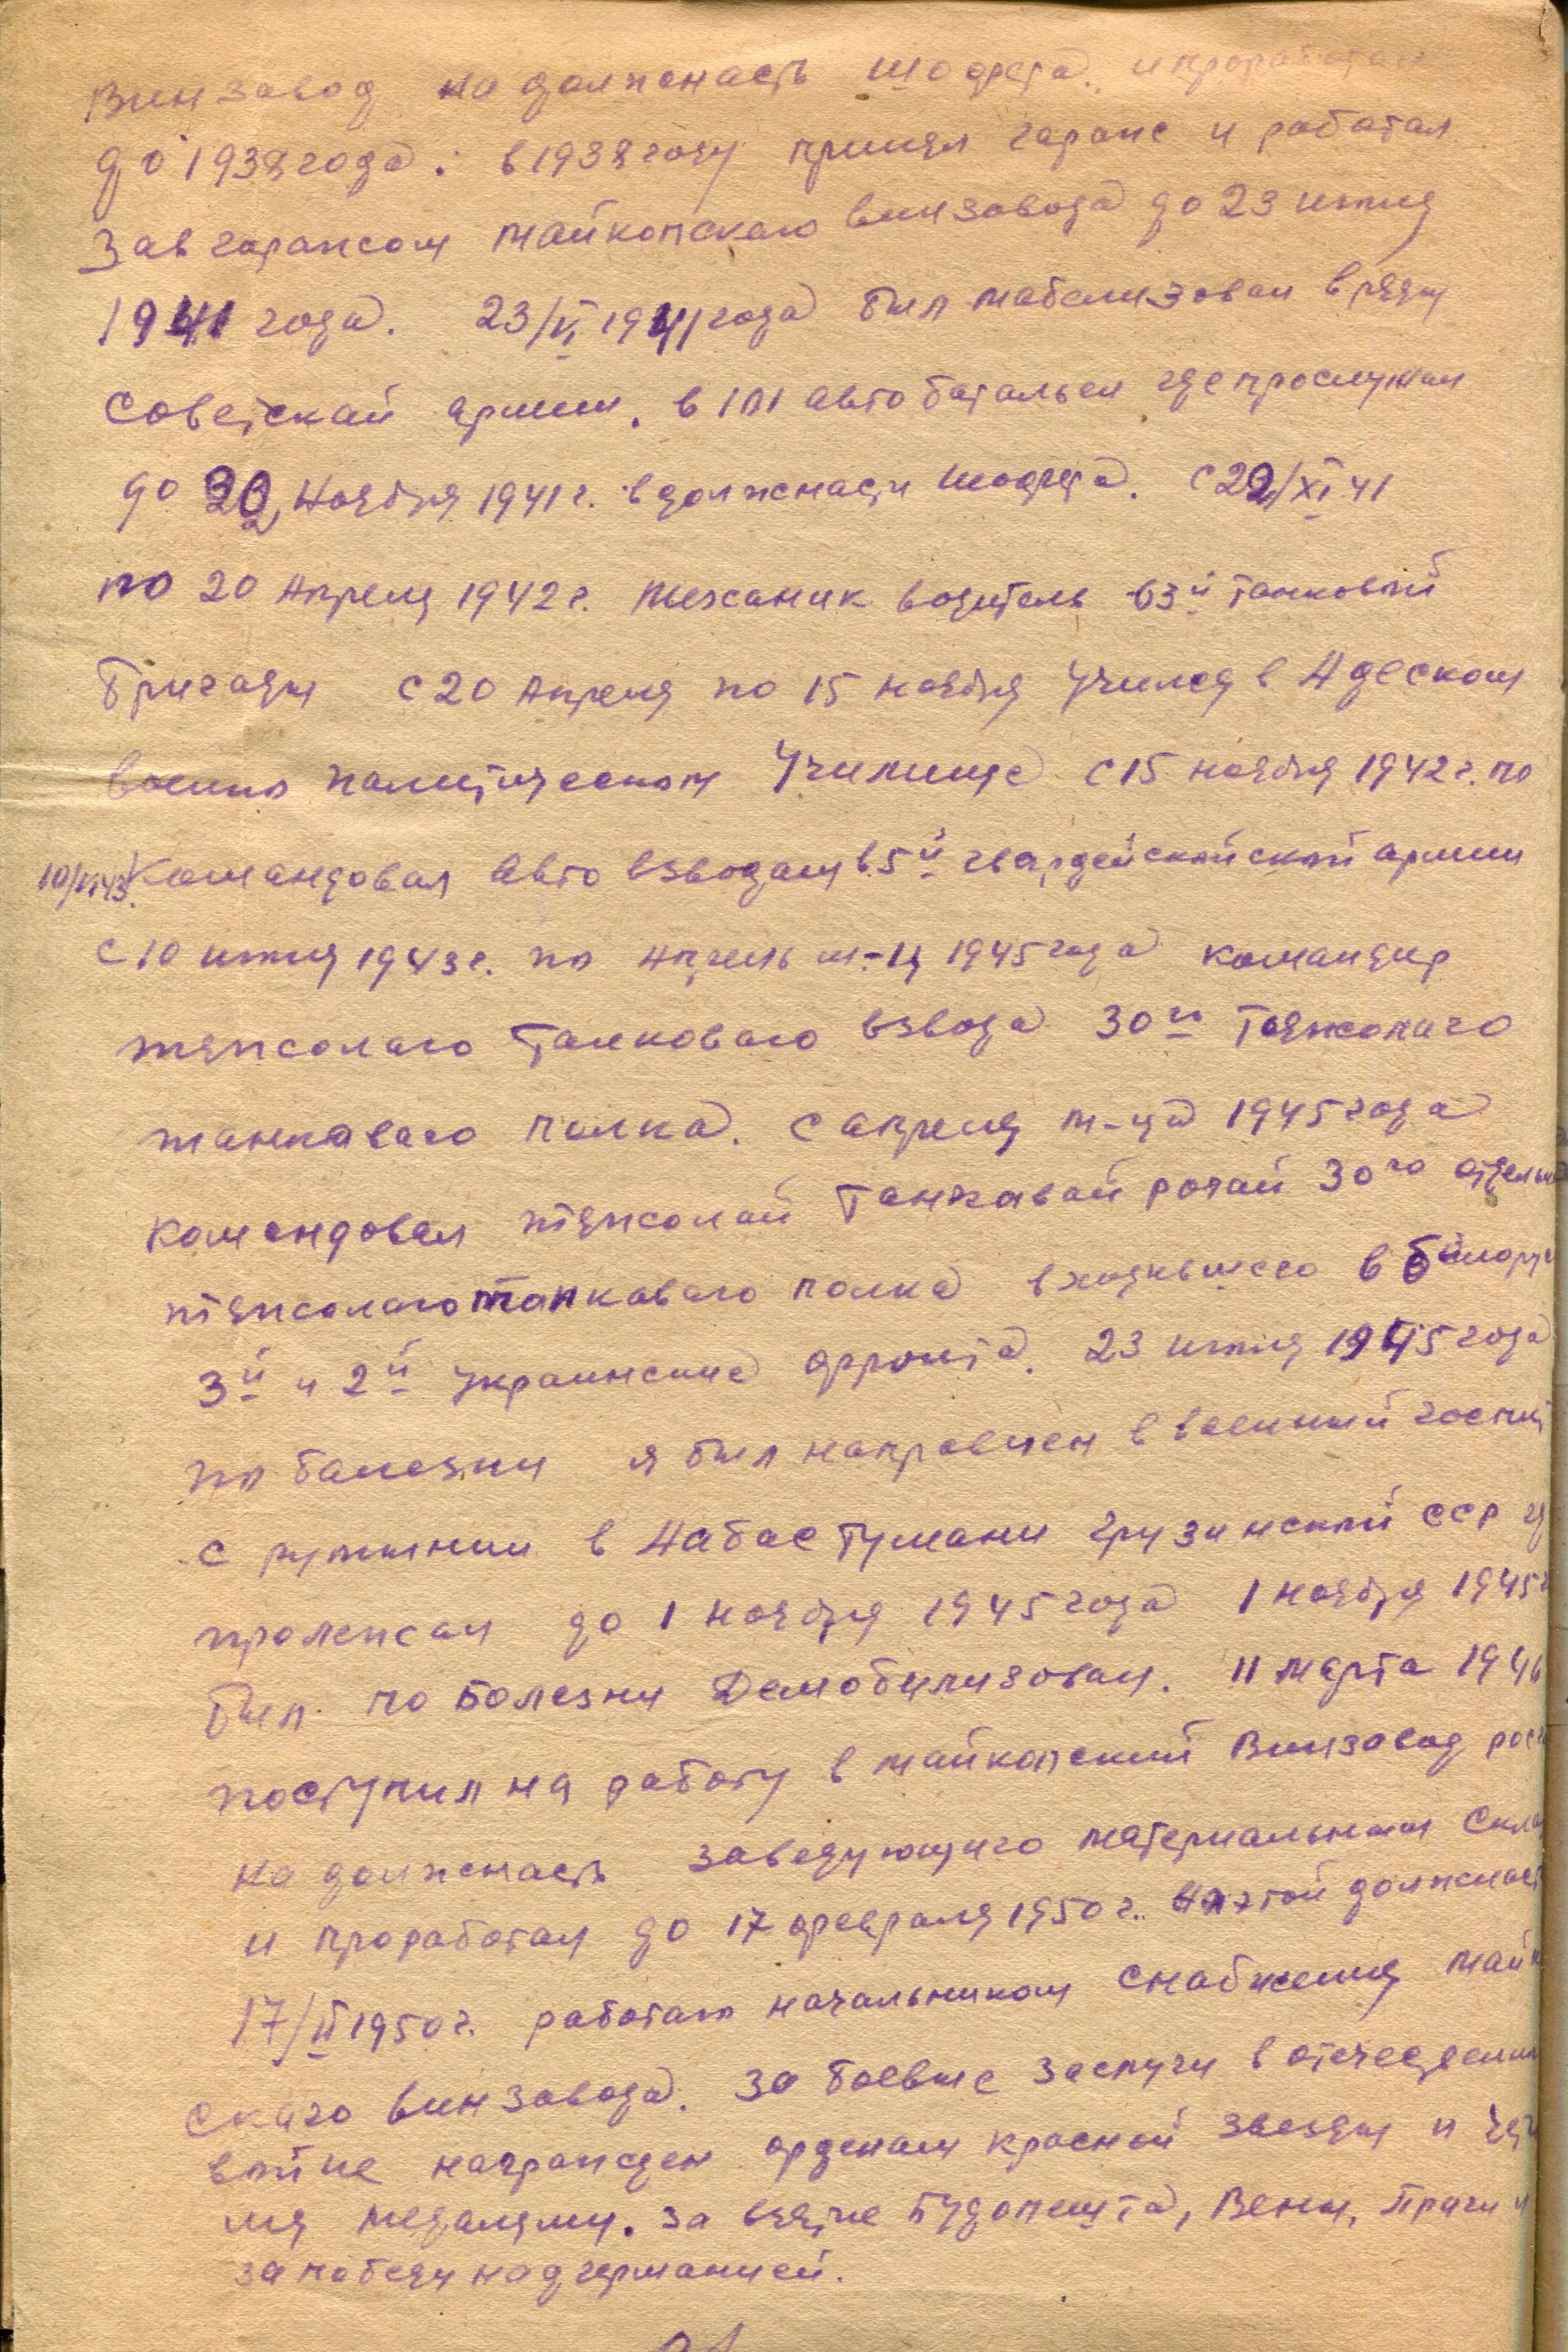 Винзавод на должнасть шофера. и проработал
до 1938 года. в 1938 году принял гараже и работал
Зав гаражсом майкопскаго винзавода до 23 июня
1941 года. 23/VI 1941 года был мабелизован в ряды
Советскай армии. в 101 авто батальен где прослужил
до 22 Ноября 1941 г. в должнасти шофера. С 22/XI 41
по 20 Апреля 1942 г. Механик водитель 63й танковый
бригады с 20 Апреля по 15 ноября Учился в Адеском
военно палитическом Училище с 15 ноября 1942 г. по
10/VI 43. Командовал авто взводам в 5й гвардейскайской армии
с 10 июня 1943 г. по Апрель м-ц 1945 года командир
тяжсолаго танковаго взвода 30й тяжсолаго
танковаго полка. с апреля м-ца 1945 года
командовал тяжсолай танкавай ротай 30го отдельн
тяжсолаго танкаваго полка входившего в белорус
3й и 2й украинские фронта. 23 июня 1945 года
по балезни я был направлен в военный госпит
с румынии в Абастумани грузинской ССР гд
пролежсал до 1 ноября 1945 года 1 ноября 1945 г
был по болезни Демобилизован. 11 марта 1946
поступил на работу в майкопский Винзавод рос
на должнасть заведующего материальным скла
и проработал до 17 февраля 1950 г. этой должнаст
17/II 1950 г. работаю начальником снабжения май
скаго винзавода. За боевые заслуги в отечественн
войне награжден орденам красной звезды и
мя медалями. за взятие Будопешта, Вены, Праги и
за победу над германией.